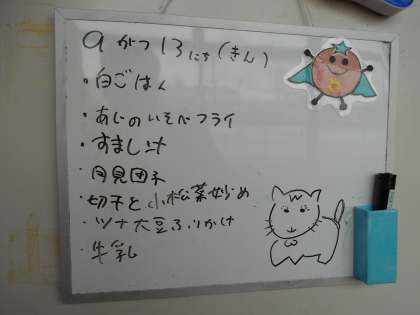 9がつ13にち(きん)
・白ごはん
・あじのいそべフライ
・すまし汁
・月見団子
・切干と小松菜炒め
・ツナ大豆ふりかけ
・牛乳